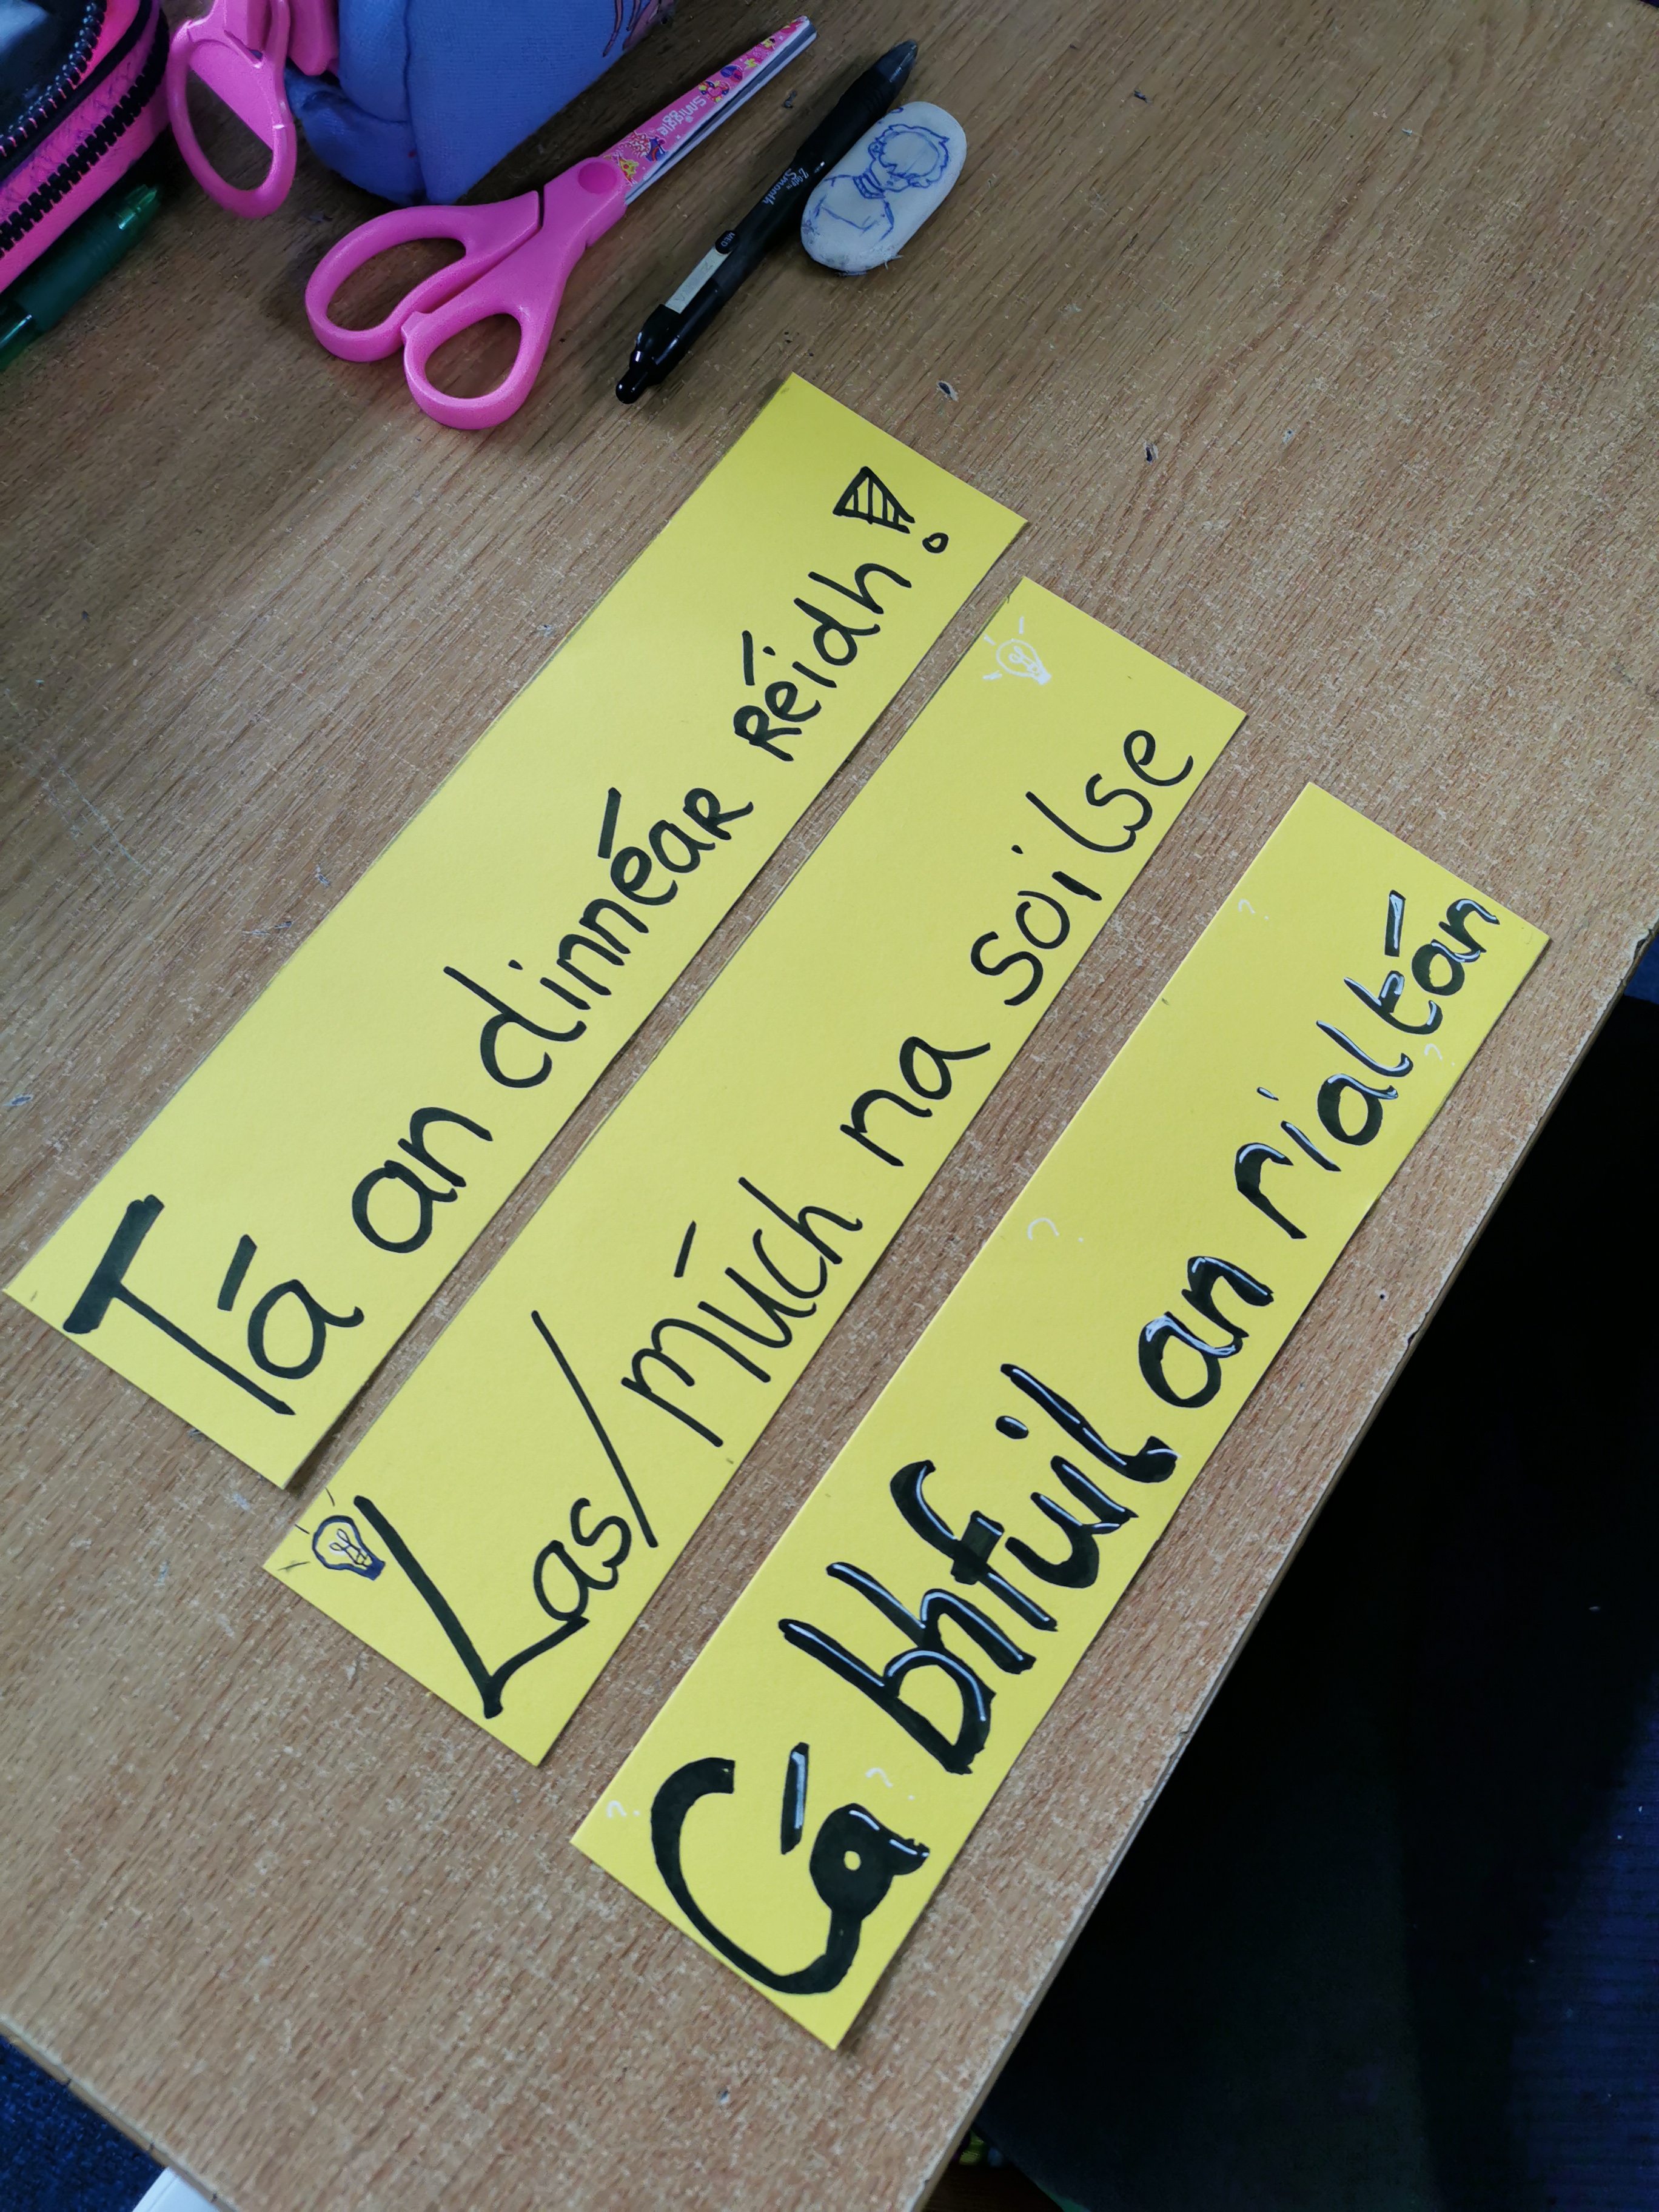 Smiggle
Z Grip Smooth
MED
Tá an dinnéar réidh!
Las/múch na soilse
Cá bhfuil an rialtán
? ? ? ? ?